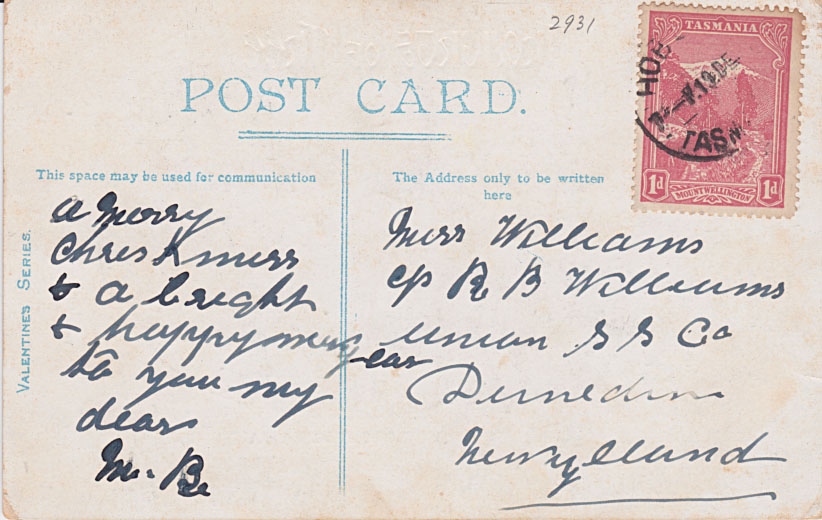 2931
TASMANIA
HOB
TAS
1d MOUNT WELLINGTON 1d
POST CARD.
This space may be used for communication
The Address only to be written
here
VALENTINE'S SERIES.
a merry
Christmuss
& a bright
& happy new year
to you my
dear
M. B.
Miss Williams
c/o R B Williams
Union S S Co
Dunedin
New Zelland